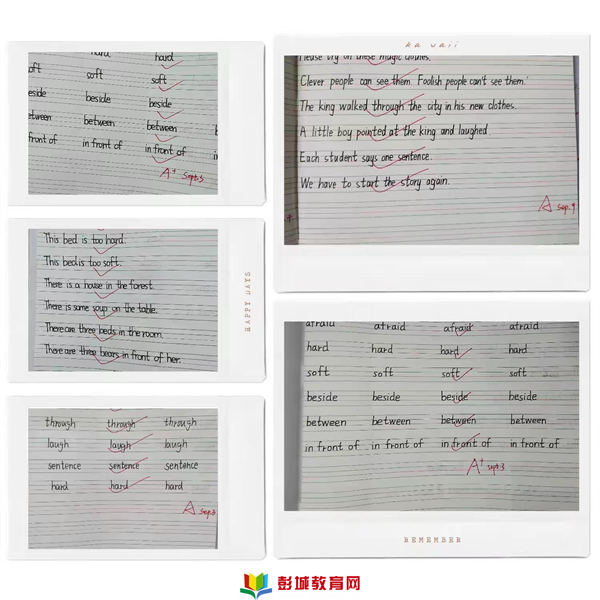 hard hard
soft soft soft
eside beside beside
etween between between
front of in front of in front of
A+ Sept.5
This bed is too hard.
This bed is too soft.
There is a house in the forest.
There is some soup on the table.
There are three beds in the room.
There are three bears in front of her.
HAPPY DAYS
through through through
laugh laugh laugh
sentence sentence sentence
hard hard hard
A Sep.8
ka waii
Please try on these magic clothes.
Clever people can see them. Foolish people can't see them.'
The king walked through the city in his new clothes.
A little boy pointed at the king and laughed.
Each student says one sentence.
We have to start the story again.
A Sep.9
afraid afraid afraid afraid
hard hard hard hard
soft soft soft soft
beside beside beside beside
between between between between
in front of in front of in front of in front of
A+ Sept.3
REMEMBER
彭城教育网